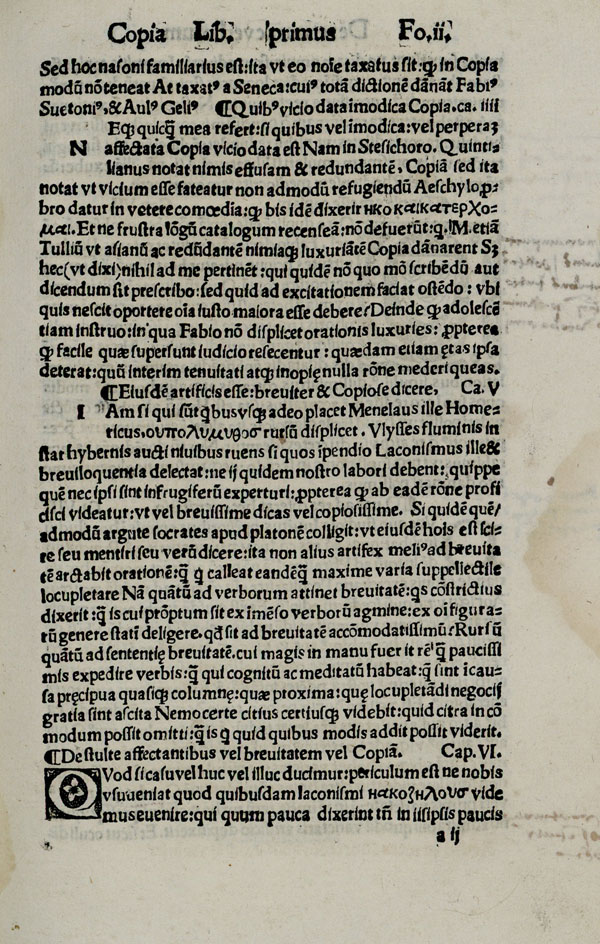 Copia Lib. primus Fo.ii.
Sed hoc nasoni familiarius est:ita vt eo noīe taxatus sit:ꝙ in Copia
modū nō teneat At taxatꝰ a Seneca:cuiꝰ totā dictionē dānāt Fabiꝰ
Suetoniꝰ,& Aulꝰ Geliꝰ ¶Quibꝰ vicio data īmodica Copia.ca. iiii
Eꝙ quicꝙ̄ mea refert:si quibus vel īmodica:vel perperaꝫ
N affectata Copia vicio data est Nam in Stesichoro. Quinti⸗
lianus notat nimis effusam & redundantē, Copiā sed ita
notat vt vicium esse fateatur non admodū refugiendū Aeschylo ꝓ⸗
bro datur in vetere comœdia:ꝙ bis idē dixerir ηκο καικατερχο⸗
μαι. Et ne frustra lōgū catalogum recenseā:nō defuerūt:q. M. etiā
Tulliū vt asianū ac redūdantē nimiaqꝫ luxuriātē Copia dānarent Sꝫ
hec(vt dixi)nihil ad me pertinēt:qui quidē nō quo mō scribēdū aut
dicendum sit prescribo:sed quid ad excitationem faciat ostēdo: vbi
quis nescit oportere oīa iusto maiora esse debere? Deinde ꝙ adolescē
tiam instruo:in qua Fabio nō displicet orationis luxuries: ꝓpterea
ꝙ facile quæ supersunt iudicio resecentur: quædam etiam ętas ipsa
deterat:quū interim tenuitati atqꝫ inopię nulla rōne mederi queas.
¶Eiusdē artificis esse:breuiter & Copiose dicere, Ca. V
I Am si qui sūt qbus vsqꝫ adeo placet Menelaus ille Home⸗
ricus,ουπολυμυθοσ rursū displicet. Vlysses fluminis in
star hybernis aucti niuibus ruens si quos īpendio Laconismus ille&
breuiloquentia delectat:ne ij quidem nostro labori debent: quippe
quē nec ipsi sint infrugiferū experturi:ꝓpterea ꝙ ab eadē rōne profi
cisci videatur:vt vel breuissime dicas vel copiosissime. Si quidē quē/
admodū argute socrates apud platonē colligit:vt eiusdē hoīs est sci⸗
re seu mentiri seu verū dicere:ita non alius artifex meliꝰ ad breuita
tē arctabit orationē:q̄ q calleat eandēq̄ maxime varia suppellectile
locupletare Nā quātū ad verborum attinet breuitatē:qs cōstrictius
dixerit:q̄ is cui prōptum sit ex īmēso verborū agmine:ex oī figura⸗
rū genere statī deligere. qd̄ sit ad breuitatē accōmodatissimū? Rursū
quātū ad sententię breuitatē.cui magis in manu fuer it rē q̄ paucissi
mis expedire verbis:q̄ qui cognitū ac meditatū habeat:q̄ sint icau⸗
sa pręcipua quasiqꝫ columnę:quæ proxima:quę locupletādi negocij
gratia sint ascita Nemo certe citius certiusqꝫ videbit:quid citra in cō
modum possit omitti:q̄ is q quid quibus modis addit possit viderit.
¶De stulte affectantibus vel breuitatem vel Copiā. Cap. VI.
QVod si casu vel huc vel illuc ducimur:periculum est ne nobis
vsuueniat quod quibusdam laconismi κακοζηλουσ vide
mus euenire:qui quum pauca dixerint tn̄ in iisipsis paucis
a ij